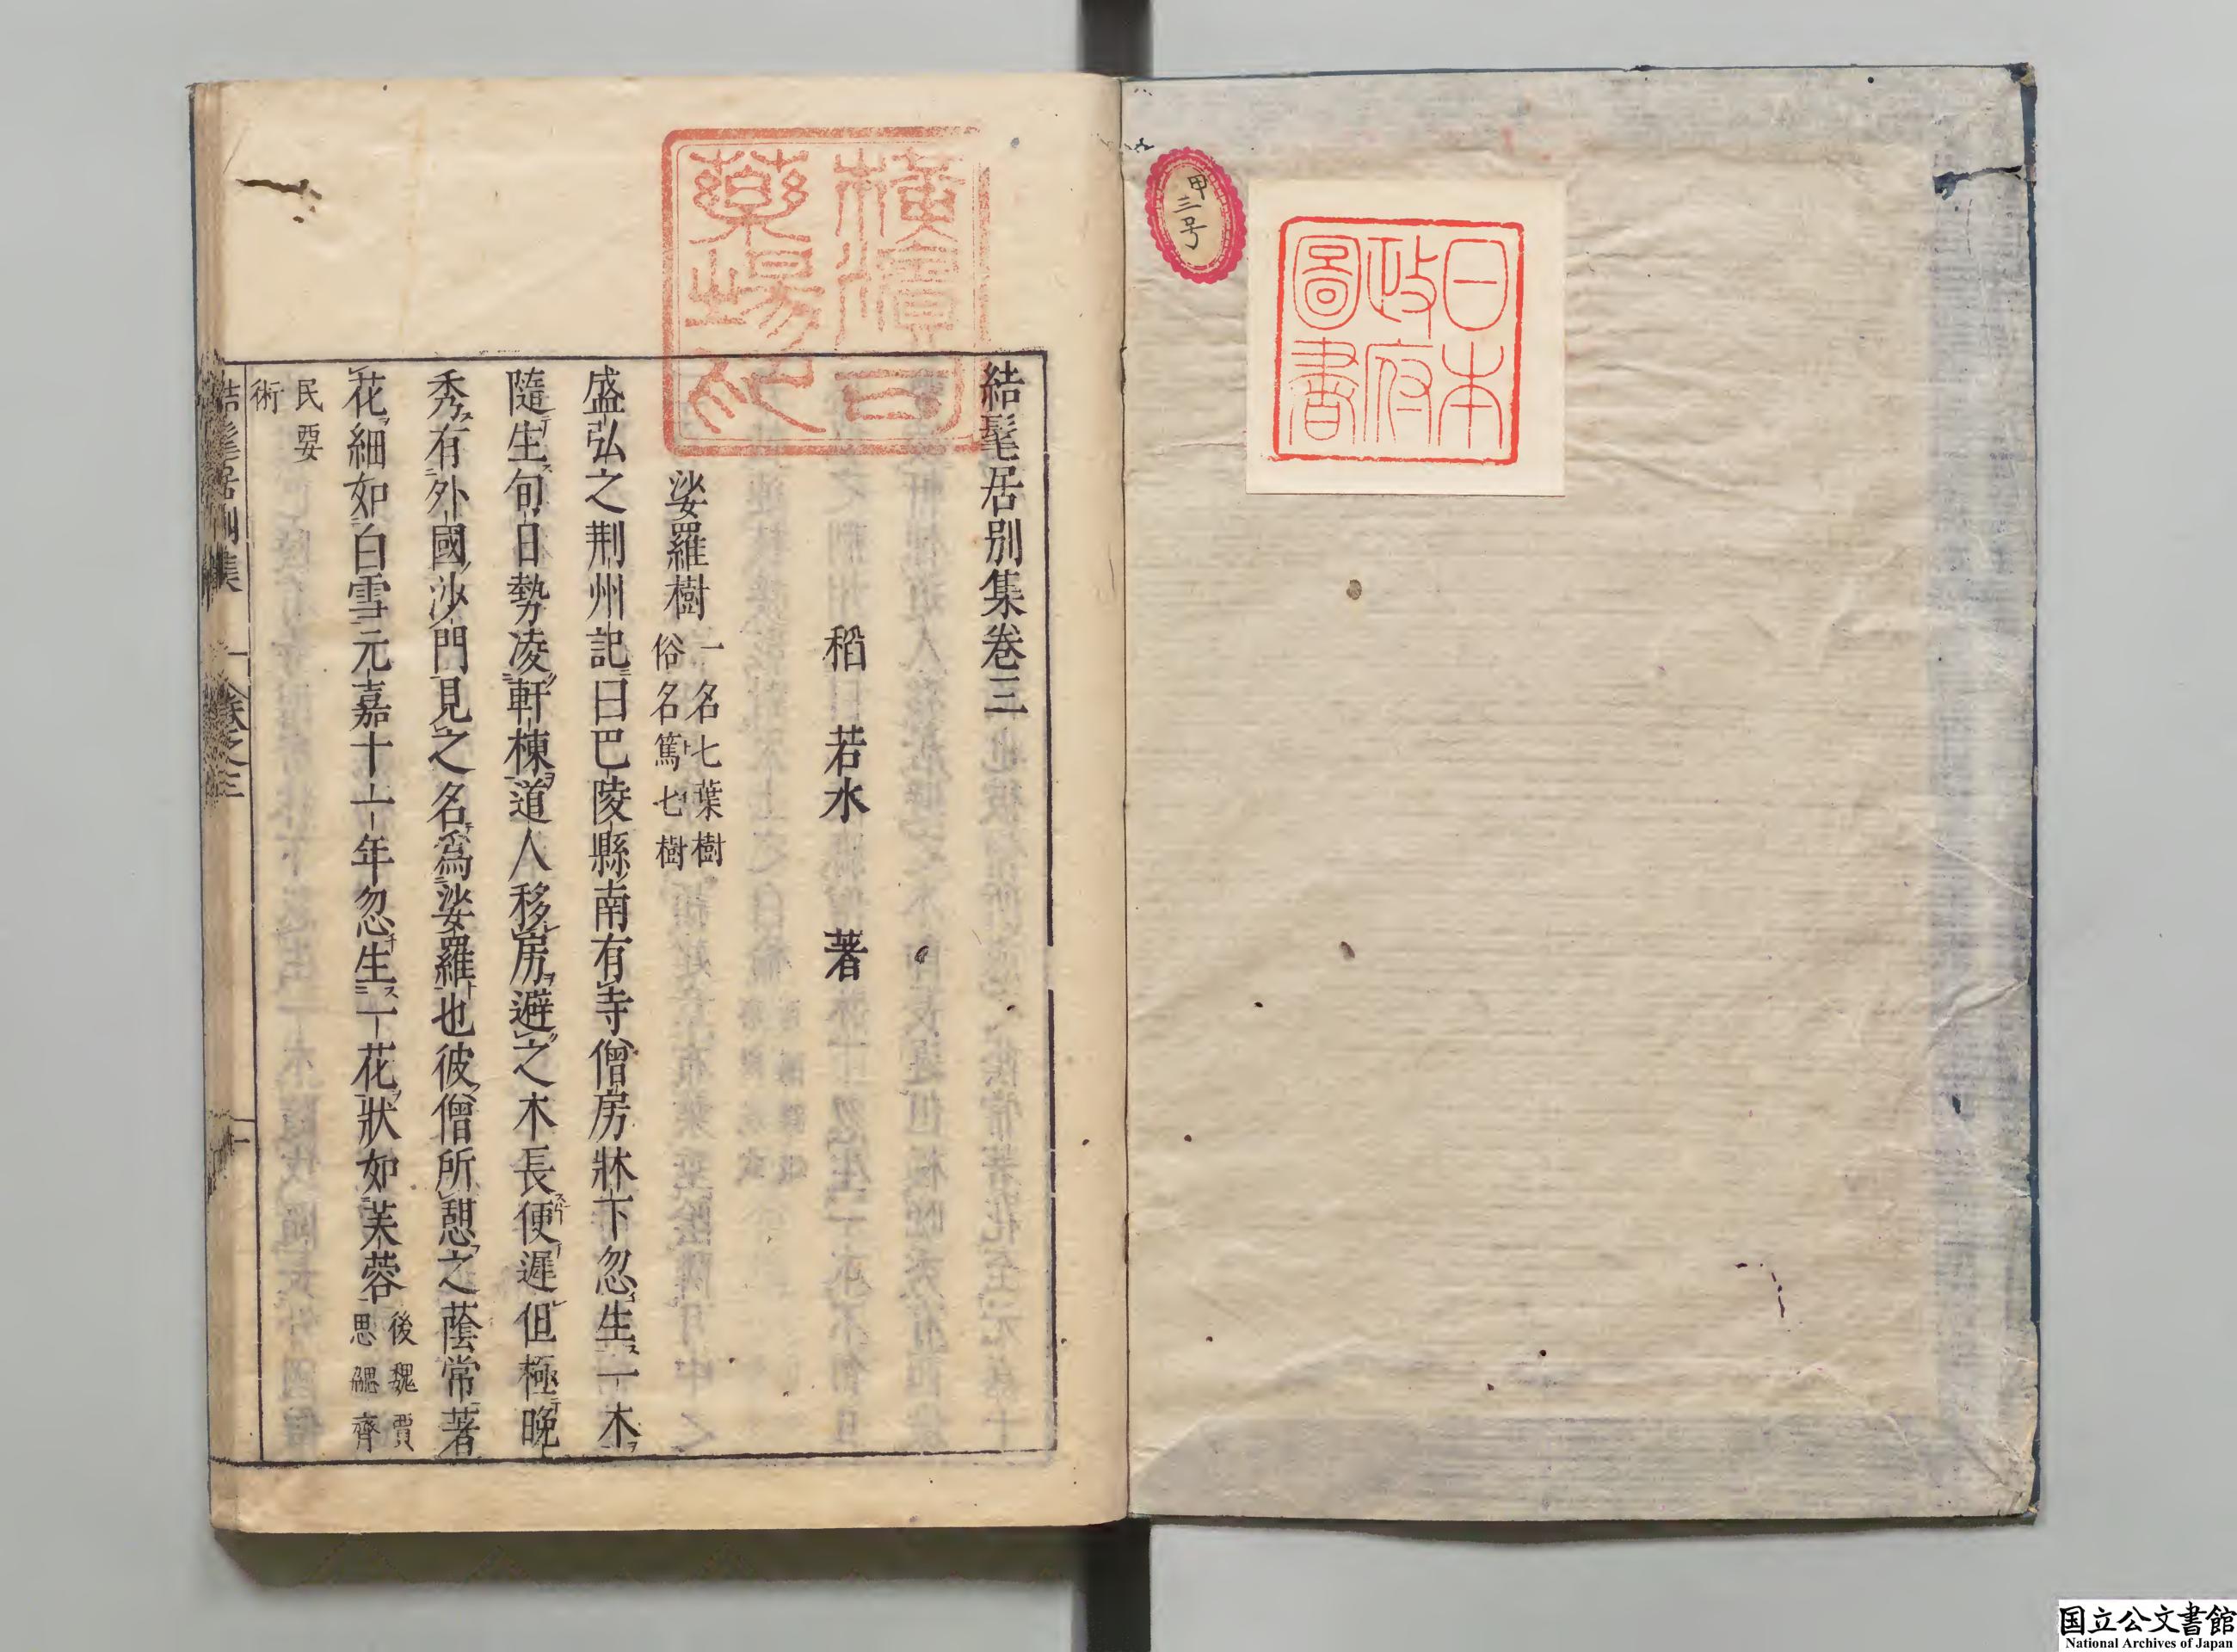 甲三号
日本
政府
圖書
結髦居别集卷三
稻若水著
娑羅樹
一名七葉樹
俗名篤七樹
盛弘之荆州記曰巴陵縣南有寺僧房牀下忽生一木
隨生旬日勢凌軒棟道人移房避之木長便遲但極晚
秀有外國沙門見之名爲娑羅也彼僧所憩之蔭常著
花細如白雪元嘉十一年忽生一花狀如芙蓉
後魏賈
思勰齊
民要
術
結髦居别集
卷之三
一
国立公文書館
National Archives of Japan